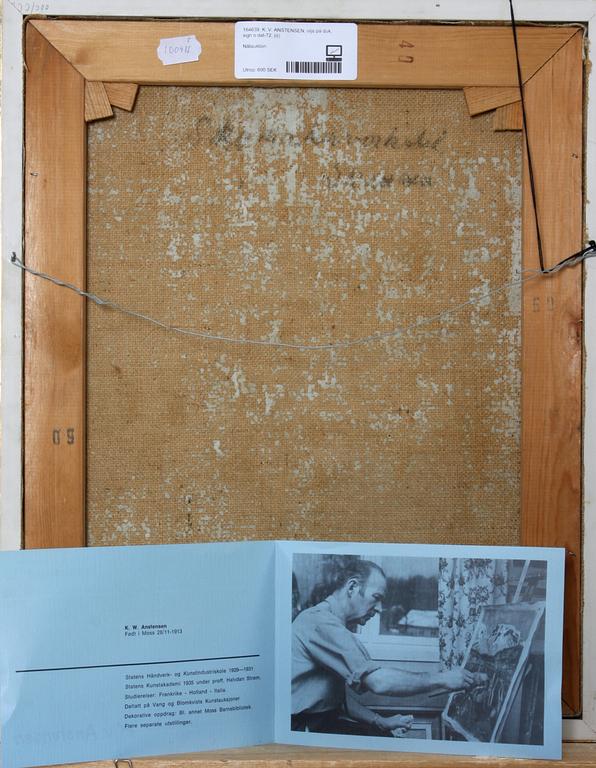 164639. K. V. ANSTENSEN, olja på duk,
sign o dat-72. (d)
Nätauktion
Utrop: 600 SEK
40
50
50
K. W. Anstensen
Født i Moss 28/11-1913
Statens Håndverk- og Kunstindustriskole 1929—1931
Statens Kunstakademi 1935 under proff. Halvdan Strøm.
Studiereiser: Frankrike - Holland - Italia.
Deltatt på Vang og Blomkvists Kunstauksjoner
Dekorative oppdrag: Bl. annet Moss Barnebibliotek.
Flere separate utstillinger.